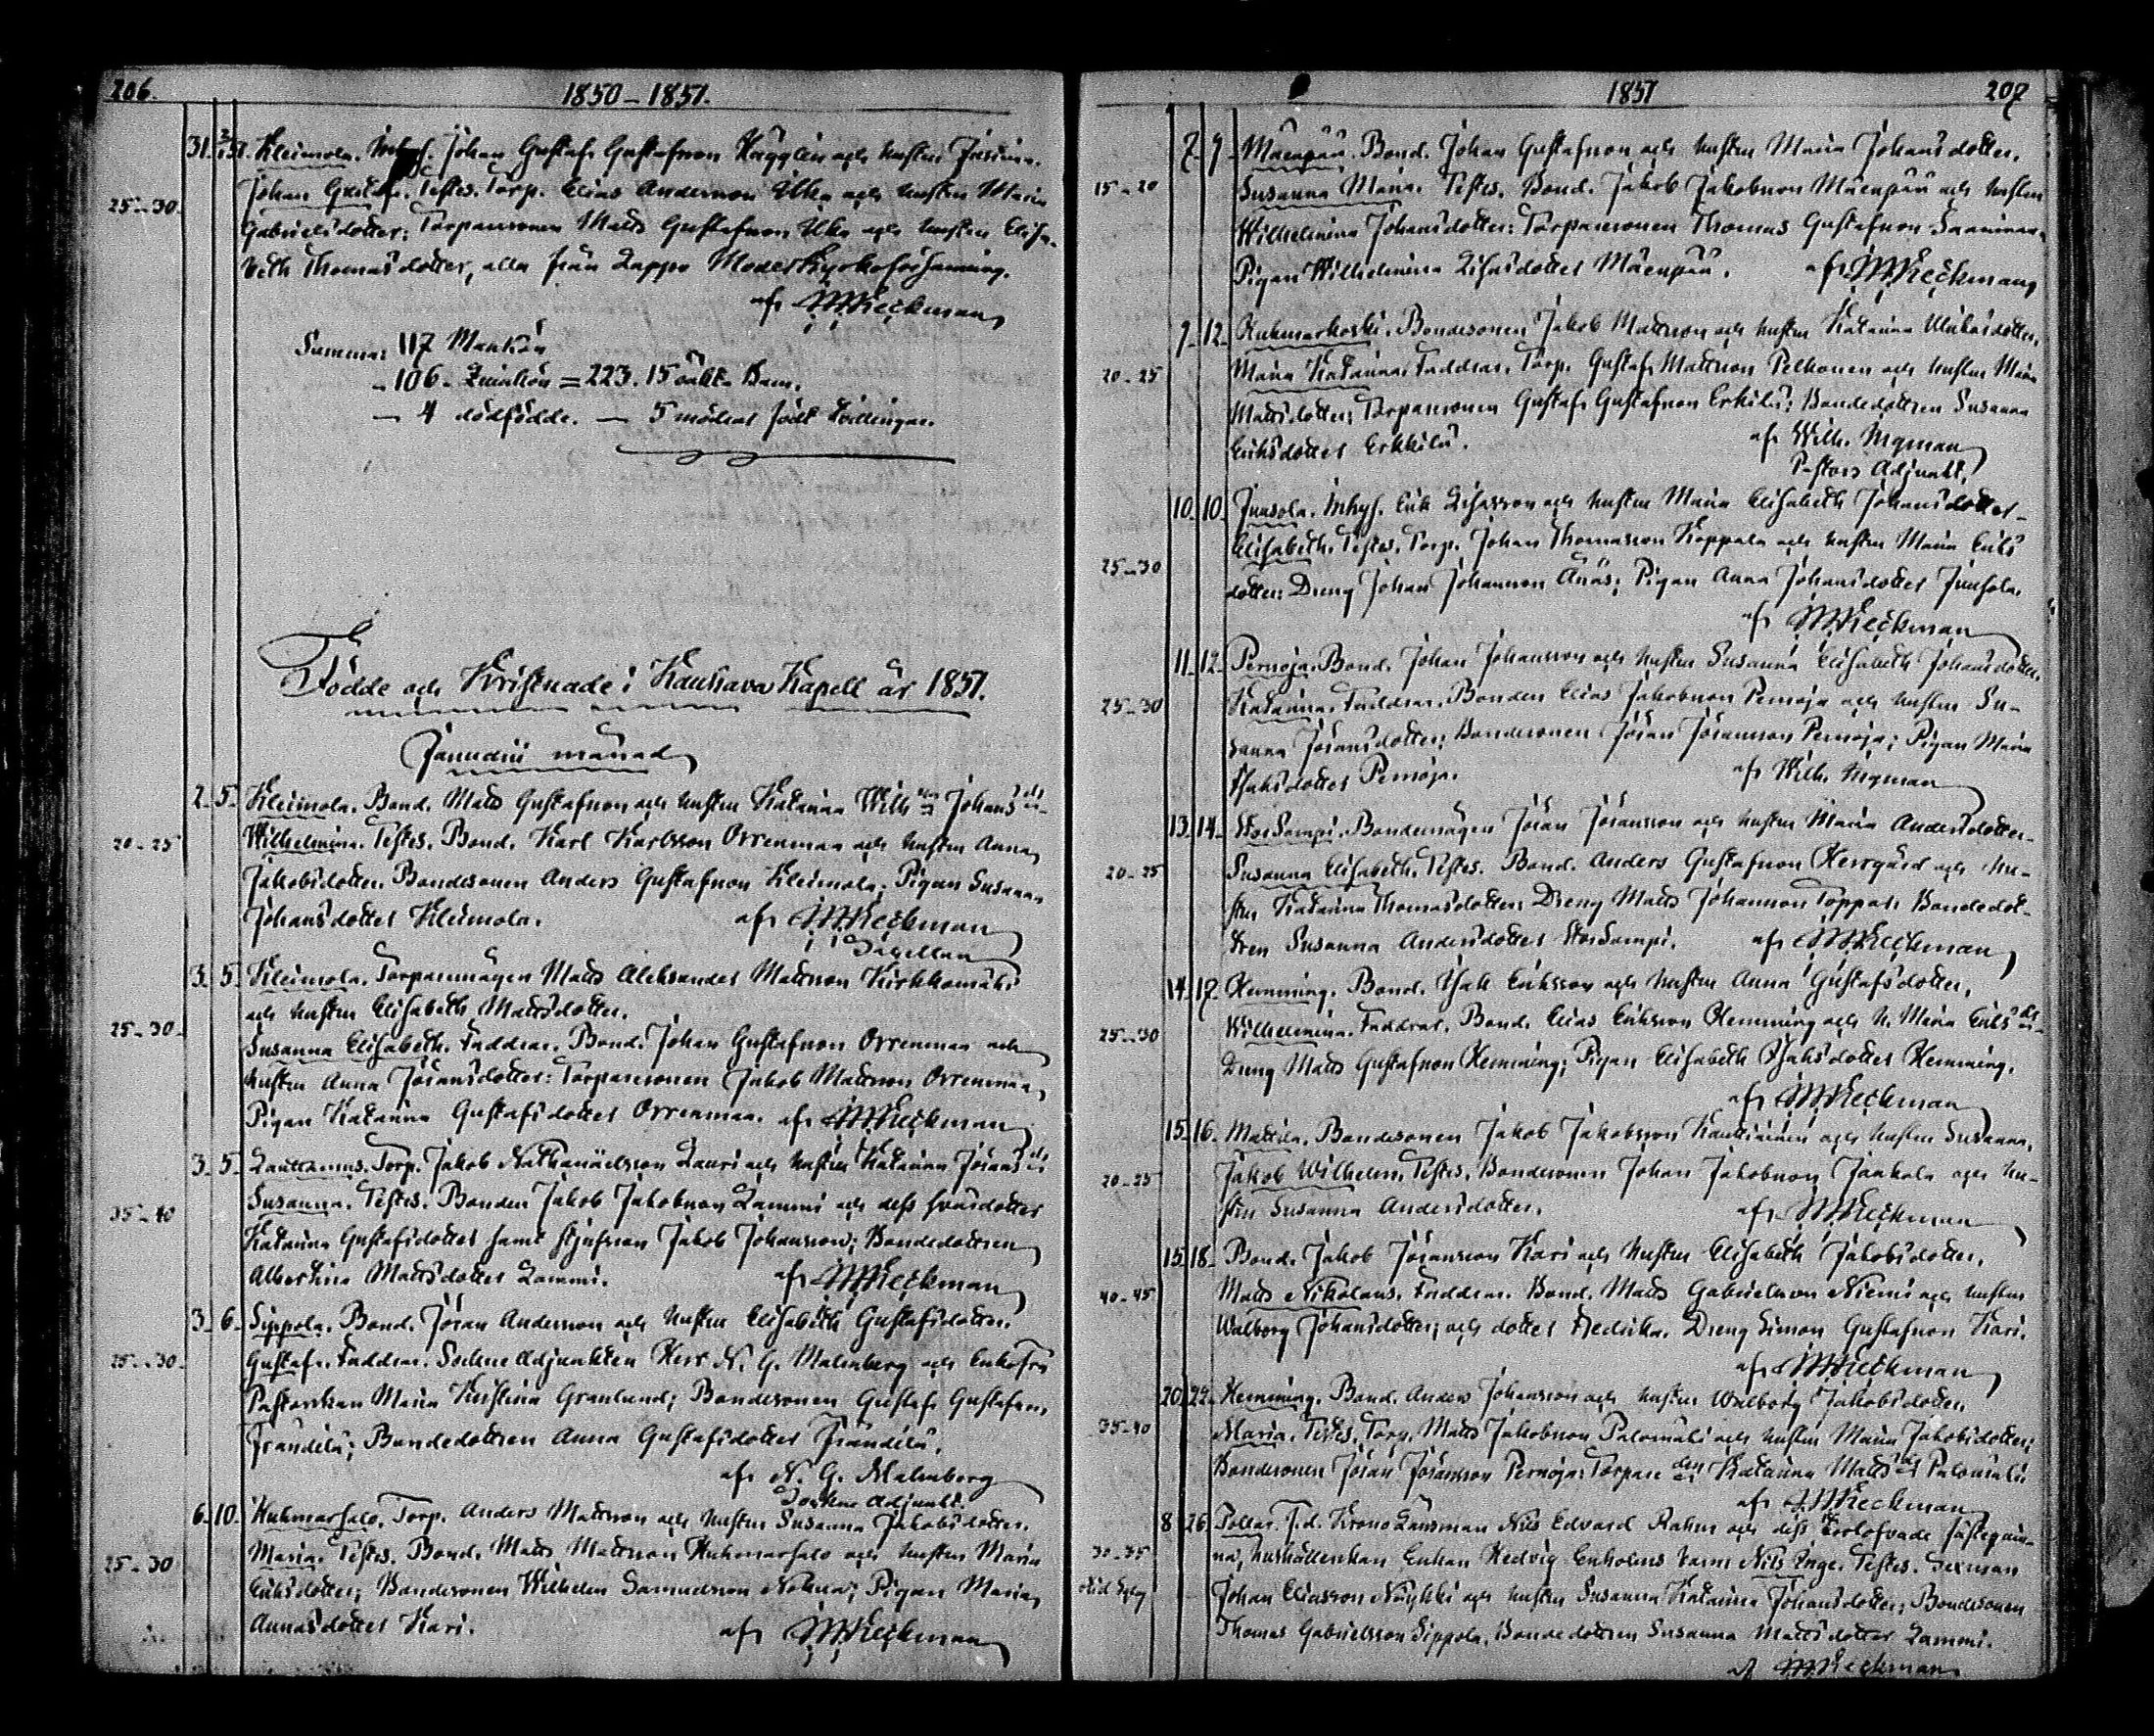 206.
1850–1851.
31. Kleimola. Johan Gustaf Gustafsson Hägglin och hustru
Johan Gustaf. Testes. Torp. Elias Andersson Ilka och hustru Maria
25–30
Gabrielsdotter; Torparesonen Matts Gustafsson Ilka och hustru Elisa-
beth Thomasdotter, alla från Lappo Moderkyrkoförsamling.
af Heckman
Summa: 117 Mankön
–106. Qvinkön = 223. 15 oäkt. Barn.
– 4 dödfödde. — 5 mödrar födt Tvillingar.
Födde och Kristnade i Kauhava Kapell år 1851.
Januarii månad
2. 5. Kleimola. Bond. Matts Gustafsson och hustru Katarina Wilh. Johans
20–25
Wilhelmina. Testes. Bond. Karl Karlsson Orrenmaa och hustru Anna
Jakobsdotter. Bondesonen Anders Gustafsson Kleimola; Pigan Susanna
Johansdotter Kleimola. af Heckman
3. 5. Kleimola. Torparemågen Matts Aleksander Mattsson Kirkkomäki
och hustru Elisabeth Mattsdotter.
25–30
Susanna Elisabeth. Faddrar. Bond. Johan Gustafsson Orrenmaa och
hustru Anna Jöransdotter: Torparesonen Jakob Mattsson Orrenmaa,
Pigan Katarina Gustafsdotter Orrenmaa. af Heckman
3. 5. Torp. Jakob Nathanaelsson Lauri och hustru Katarina Jörans
Susanna. Testes. Bonden Jakob Jakobsson Lammi och dess svärdotter
35–40
Katarina Gustafsdotter samt styfsson Jakob Johansson; Bondedottren
Albertina Mattsdotter Lammi. af Heckman
3. 6. Sippola. Bond. Jöran Andersson och hustru Elisabeth Gustafsdotter.
25–30
Gustaf. Faddrar. Sockne Adjunkten Herr N. G. Malmberg och Enkefru
Pastorskan Maria Kristina Granlund; Bondesonen Gustaf Gustafsson
Frändilä; Bondedottren Anna Gustafsdotter Frändilä.
af N. G. Malmberg
Sockne Adjunkt.
6. 10. Huhmarsalo. Torp. Anders Mattsson och hustru Susanna Jakobsdotter.
Maria. Testes. Bond. Matts Mattsson Huhmarsalo och hustru Maria
25–30
Eriksdotter; Bondesonen Wilhelm Samuelsson Pigan Maria
Annasdotter Kari. af Heckman
1851
207
7. 9. Mäenpää. Bond. Johan Gustafsson och hustru Maria Johansdotter.
15–20
Susanna Maria. Testes. Bond. Jakob Jakobsson Mäenpää och hustru
Wilhelmina Johansdotter: Torparesonen Thomas Gustafsson
Pigan Wilhelmina Lisasdotter Mäenpää. af Heckman
9. 12. Ruhmarkoski. Bondesonen Jakob Mattsson och hustru Katarina
20–25
Maria Katarina. Faddrar. Torp. Gustaf Mattsson Pelkonen och hustru Maria
Mattsdotter; Torparesonen Gustaf Gustafsson Erkilä; Bondedottren Susanna
Eriksdotter Erkkilä. af Wilh. Nyman
Pastors Adjunkt.
10. 10. Juusola. Inhys. Erik och hustru Maria Elisabeth Johansdotter.
Elisabeth. Testes. Torp. Johan Thomasson Koppala och hustru Maria Eriks
25–30
dotter: Dreng Johan Johansson Änäs; Pigan Anna Johansdotter Juusola.
af Heckman
11. 12. Pernaja. Bond. Johan Johansson och hustru Susanna Elisabeth Johansdotter.
25–30
Katarina. Faddrar. Bonden Elias Jakobsson Pernaja och hustru Su-
sanna Jöransdotter; Bondesonen Jöran Jöransson Pernaja; Pigan Maria
Isaksdotter Pernaja. af Wilh. Nyman
13. 14. Storsampi. Bondemågen Jöran Jöransson och hustru Maria Andersdotter.
20–25
Susanna Elisabeth. Testes. Bond. Anders Gustafsson Herrgård och hu-
stru Katarina Thomasdotter; Dreng Matts Johansson Toppar. Bondedot-
tren Susanna Andersdotter Storsampi. af Heckman
14. 17. Hemming. Bond. Isak Eriksson och hustru Anna Gustafsdotter.
25–30
Wilhelmina. Faddrar. Bond. Elias Eriksson Hemming och h. Maria Eriks
Dreng Matts Gustafsson Hemming; Pigan Elisabeth Isaksdotter Hemming.
af Heckman
15. 16. Mattila. Bondesonen Jakob Jakobsson och hustru Susanna.
20–25
Jakob Wilhelm. Testes. Bondesonen Johan Jakobsson Jaakola och hu-
stru Susanna Andersdotter. af Heckman
15. 18. Bond. Jakob Jöransson Kari och hustru Elisabeth Jakobsdotter.
40–45
Matts Nikolaus. Faddrar. Bond. Matts Gabrielsson Niemi och hustru
Walborg Johansdotter; och dotter Fredrika. Dreng Simon Gustafsson Kari.
af Heckman
20. 22. Hemming. Bond. Anders Johansson och hustru Walborg Jakobsdotter.
35–40
Maria. Testes. Torp. Matts Jakobsson Palomäki och hustru Maria Jakobsdotter;
Bondesonen Jöran Jöransson Pernaja: Torpare Katarina Matts Palomäki
af Heckman
8. 26. Pollari. F.d. Krono Länsman Nils Edvard Rahm och dess trolofvade fästeqvin-
30–35
na, hushållerskan Enkan Hedvig Enholms barn Nils Inge. Testes. Sexman
Johan Eliasson och hustru Susanna Katarina Johansdotter; Bondesonen
Thomas Gabrielsson Sippola. Bondedottren Susanna Mattsdotter Lammi.
af Heckman